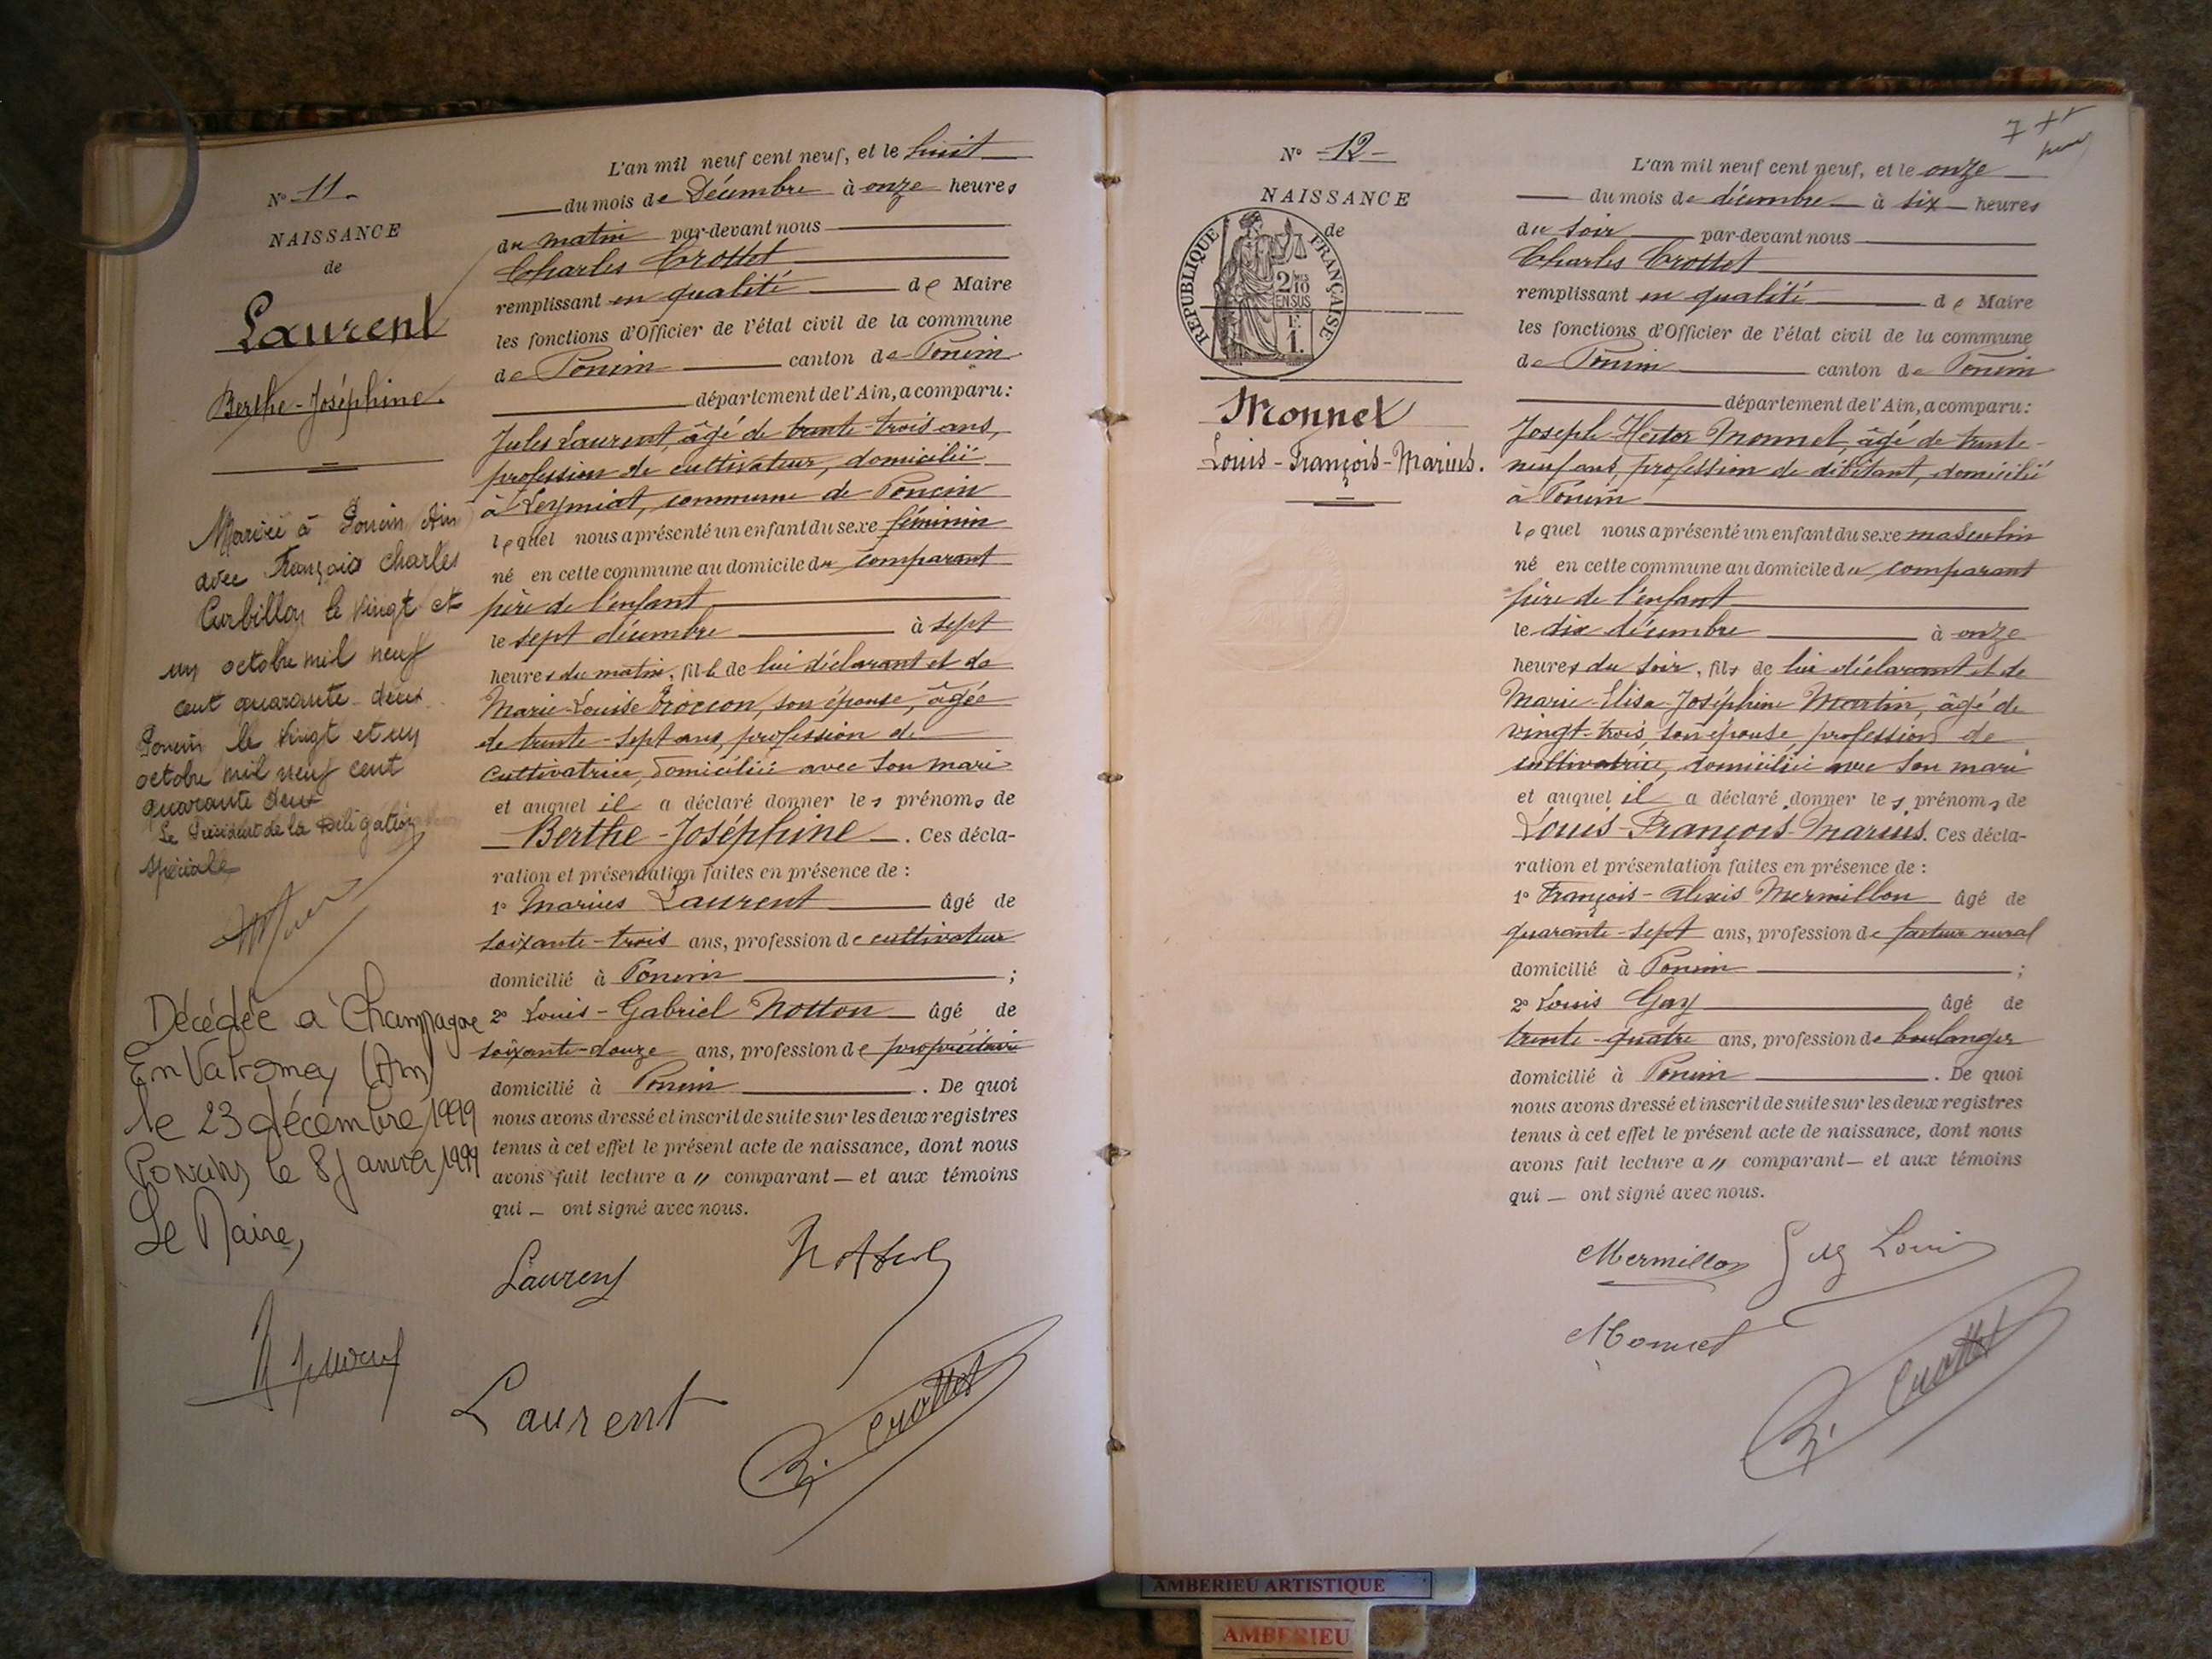 N° 11.
NAISSANCE
de
Laurent
Berthe-Joséphine.
Mariée à Poncin Ain
avec François Charles
Curbillon le vingt et
un octobre mil neuf
cent quarante-deux.
Poncin le vingt et un
octobre mil neuf cent
quarante deux
Le Président de la Délégation
spéciale
Décédée a Champagne
En Valromey (Ain)
le 23 décembre 1999
Poncin, le 8 janvier 1999
Le Maire,
L'an mil neuf cent neuf, et le huit
du mois de Décembre à onze heures
du matin par-devant nous
Charles Crottet
remplissant en qualité de Maire
les fonctions d'Officier de l'état civil de la commune
de Poncin canton de Poncin
département de l'Ain, a comparu:
Jules Laurent, âgé de trente-trois ans,
profession de cultivateur, domicilié
à Leymiat, commune de Poncin
lequel nous a présenté un enfant du sexe féminin
né en cette commune au domicile du comparant
père de l'enfant
le sept décembre à sept
heures du matin, fille de lui déclarant et de
Marie-Louise Trocon, son épouse, âgée
de trente-sept ans, profession de
cultivatrice, domiciliée avec son mari
et auquel il a déclaré donner les prénoms de
Berthe-Joséphine. Ces décla-
ration et présentation faites en présence de:
1° Marius Laurent âgé de
soixante-trois ans, profession de cultivateur
domicilié à Poncin ;
2° Louis-Gabriel Notton âgé de
soixante-douze ans, profession de propriétaire
domicilié à Poncin. De quoi
nous avons dressé et inscrit de suite sur les deux registres
tenus à cet effet le présent acte de naissance, dont nous
avons fait lecture a " comparant — et aux témoins
qui — ont signé avec nous.
Laurent
Laurent
Crottet
7
N° 12
NAISSANCE
de
REPUBLIQUE FRANÇAISE
2/10
EN SUS
F.
1.
Monnet
Louis-François-Marius.
L'an mil neuf cent neuf, et le onze
du mois de décembre à six heures
du soir par-devant nous
Charles Crottet
remplissant en qualité de Maire
les fonctions d'Officier de l'état civil de la commune
de Poncin canton de Poncin
département de l'Ain, a comparu:
Joseph-Hector Monnet, âgé de trente-
neuf ans, profession de débitant, domicilié
à Poncin
lequel nous a présenté un enfant du sexe masculin
né en cette commune au domicile du comparant
père de l'enfant
le dix décembre à onze
heures du soir, fils de lui déclarant et de
Marie-Elisa-Joséphine Martin, âgé de
vingt-trois, son épouse profession de
cultivatrice, domiciliée avec son mari
et auquel il a déclaré donner les prénoms de
Louis-François-Marius. Ces décla-
ration et présentation faites en présence de:
1° François-Alexis Mermillon âgé de
quarante-sept ans, profession de facteur rural
domicilié à Poncin ;
2° Louis Gay âgé de
trente-quatre ans, profession de boulanger
domicilié à Poncin. De quoi
nous avons dressé et inscrit de suite sur les deux registres
tenus à cet effet le présent acte de naissance, dont nous
avons fait lecture a " comparant — et aux témoins
qui — ont signé avec nous.
Mermillon Gay Louis
Monnet
Crottet
AMBERIEU ARTISTIQUE
AMBERIEU